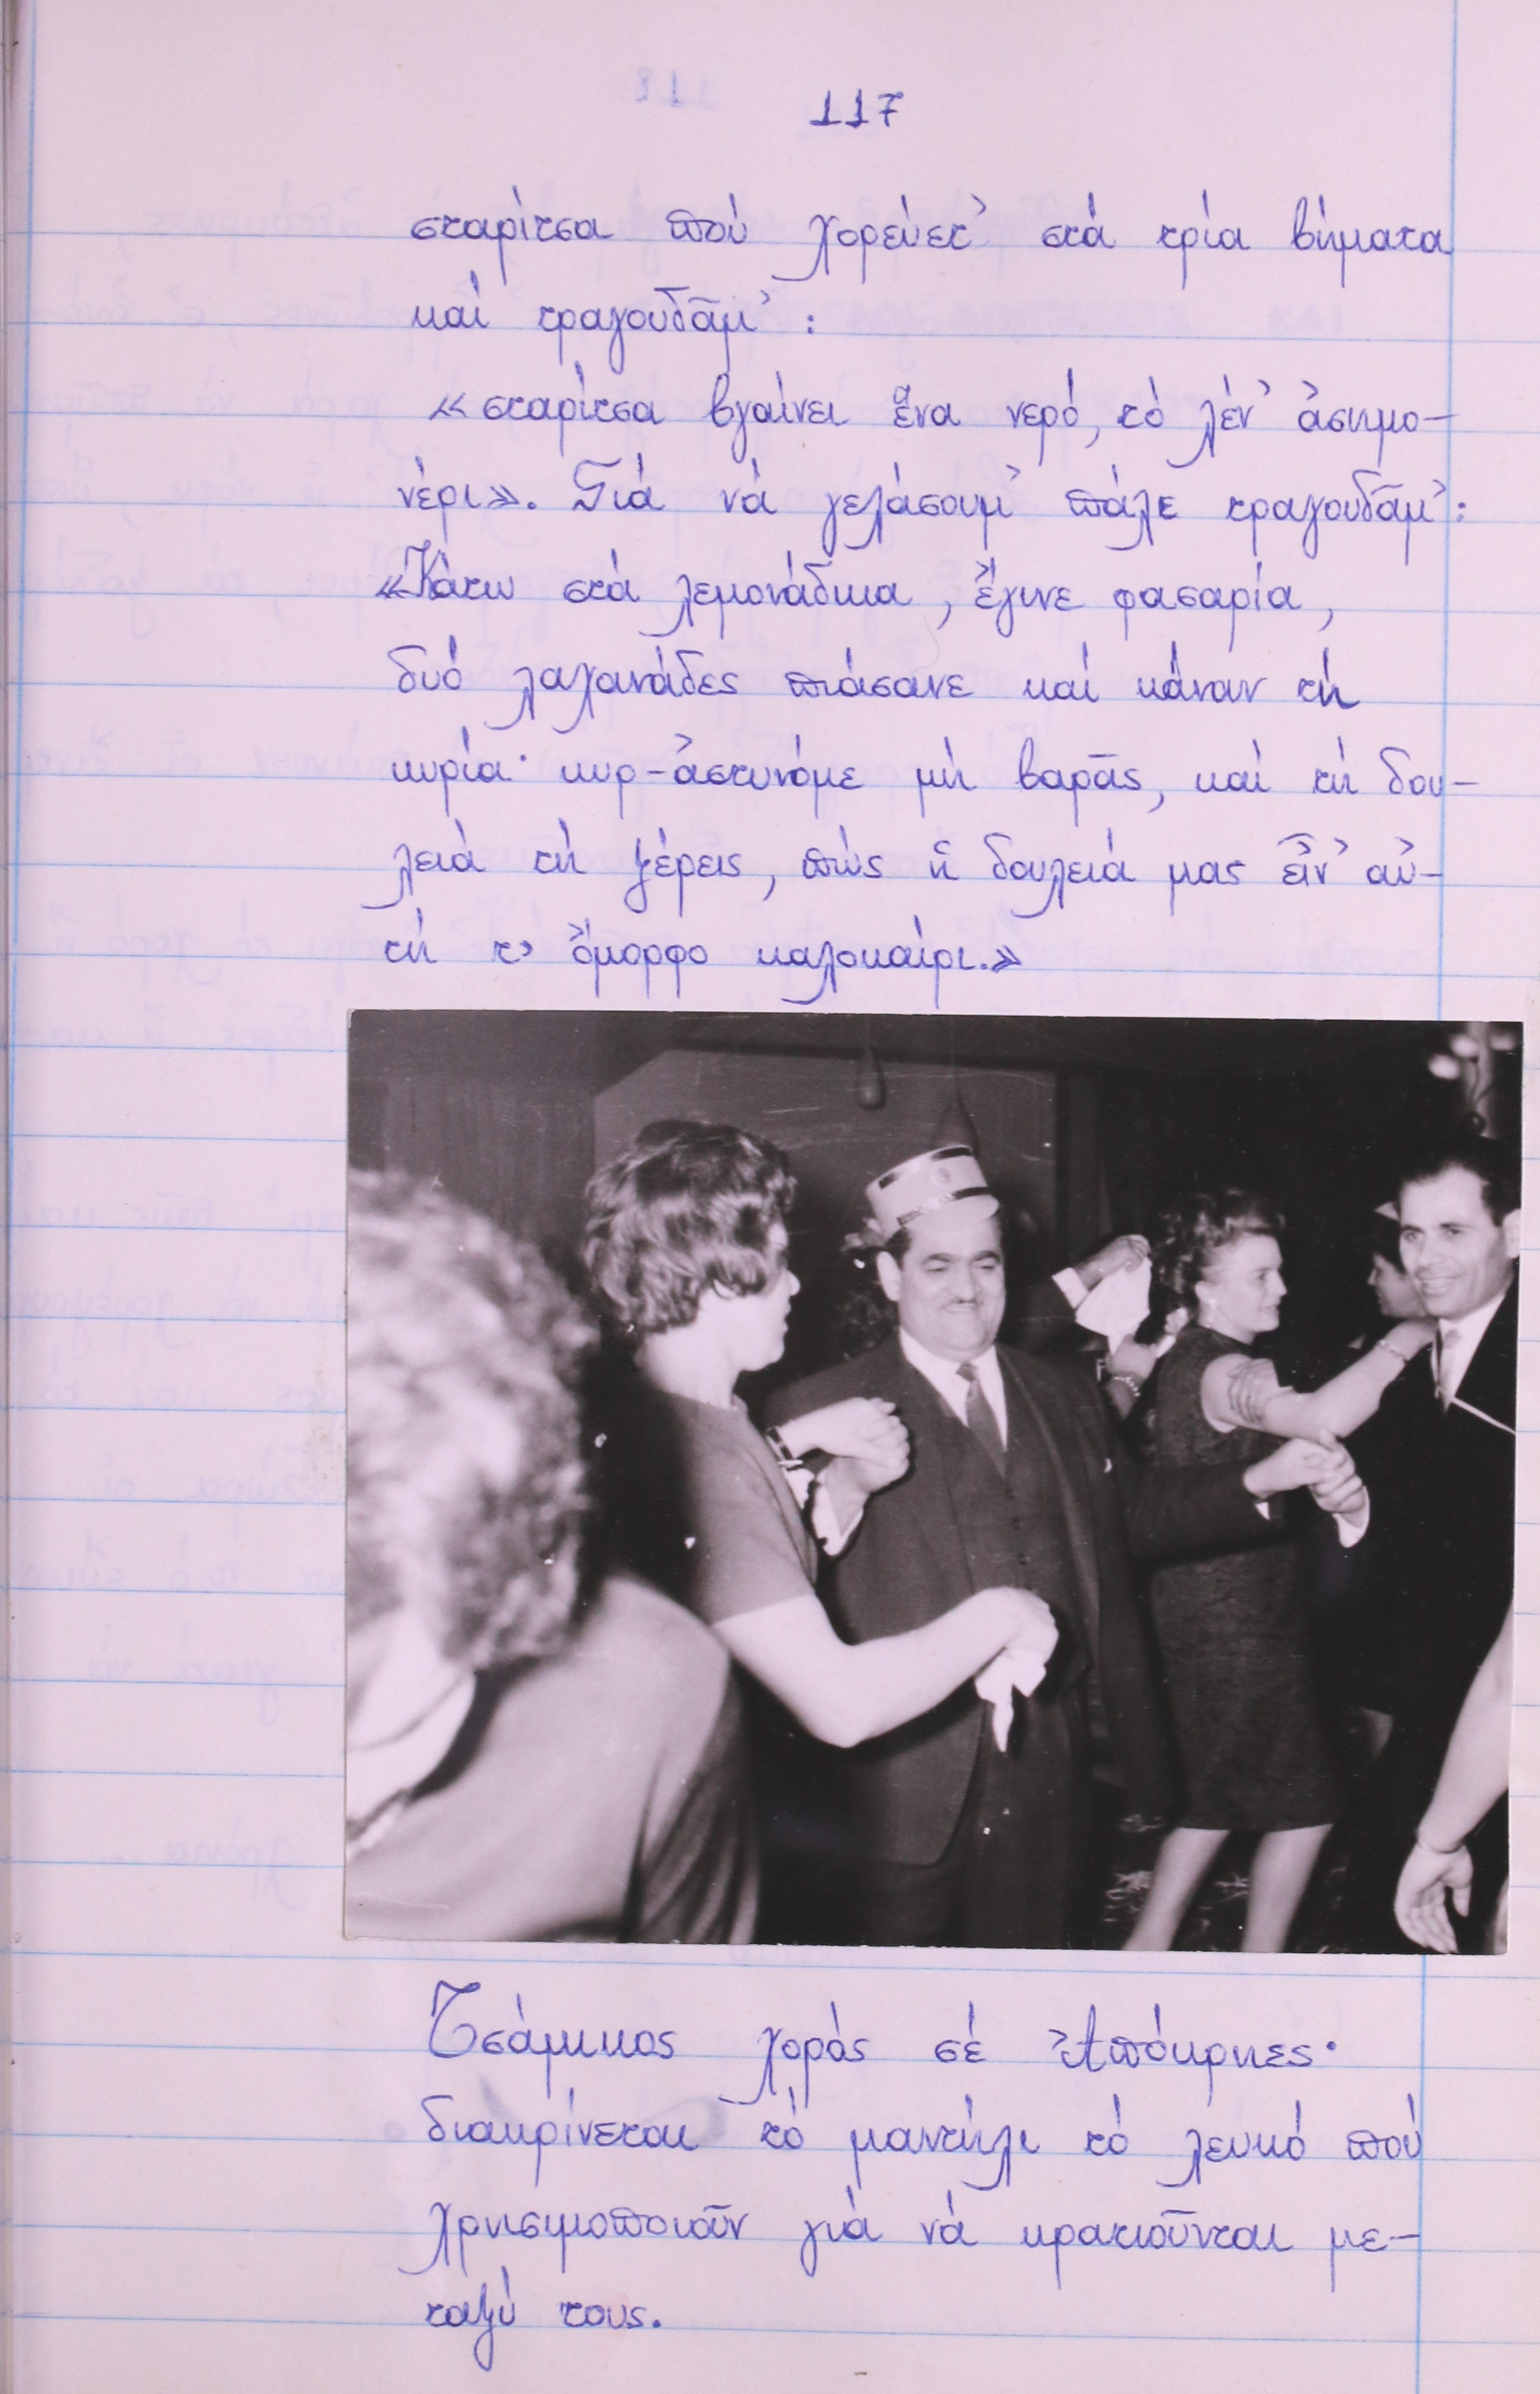 117
σταρίτσα πού χορεύετ' στά τρία βήματα
καί τραγουδᾶμ' :
«σταρίτσα βγαίνει ἕνα νερό, τό λέν' ἀσημο-
νέρι». Γιά νά γελάσουμ' πάλε τραγουδᾶμ':
«Κάτω στά λεμονάδικα, ἔγινε φασαρία,
δυό λαχανάδες πιάσανε καί κάναν τή
κυρία· κυρ-ἀστυνόμε μή βαρᾶς, καί τή δου-
λειά τή ξέρεις, πώς ἡ δουλειά μας εἶν' αὐ-
τή τ' ὄμορφο καλοκαίρι.»
Τσάμικος χορός σέ Ἀπόκρηες·
διακρίνεται τό μαντήλι τό λευκό πού
χρησιμοποιοῦν γιά νά κρατιοῦνται με-
ταξύ τους.